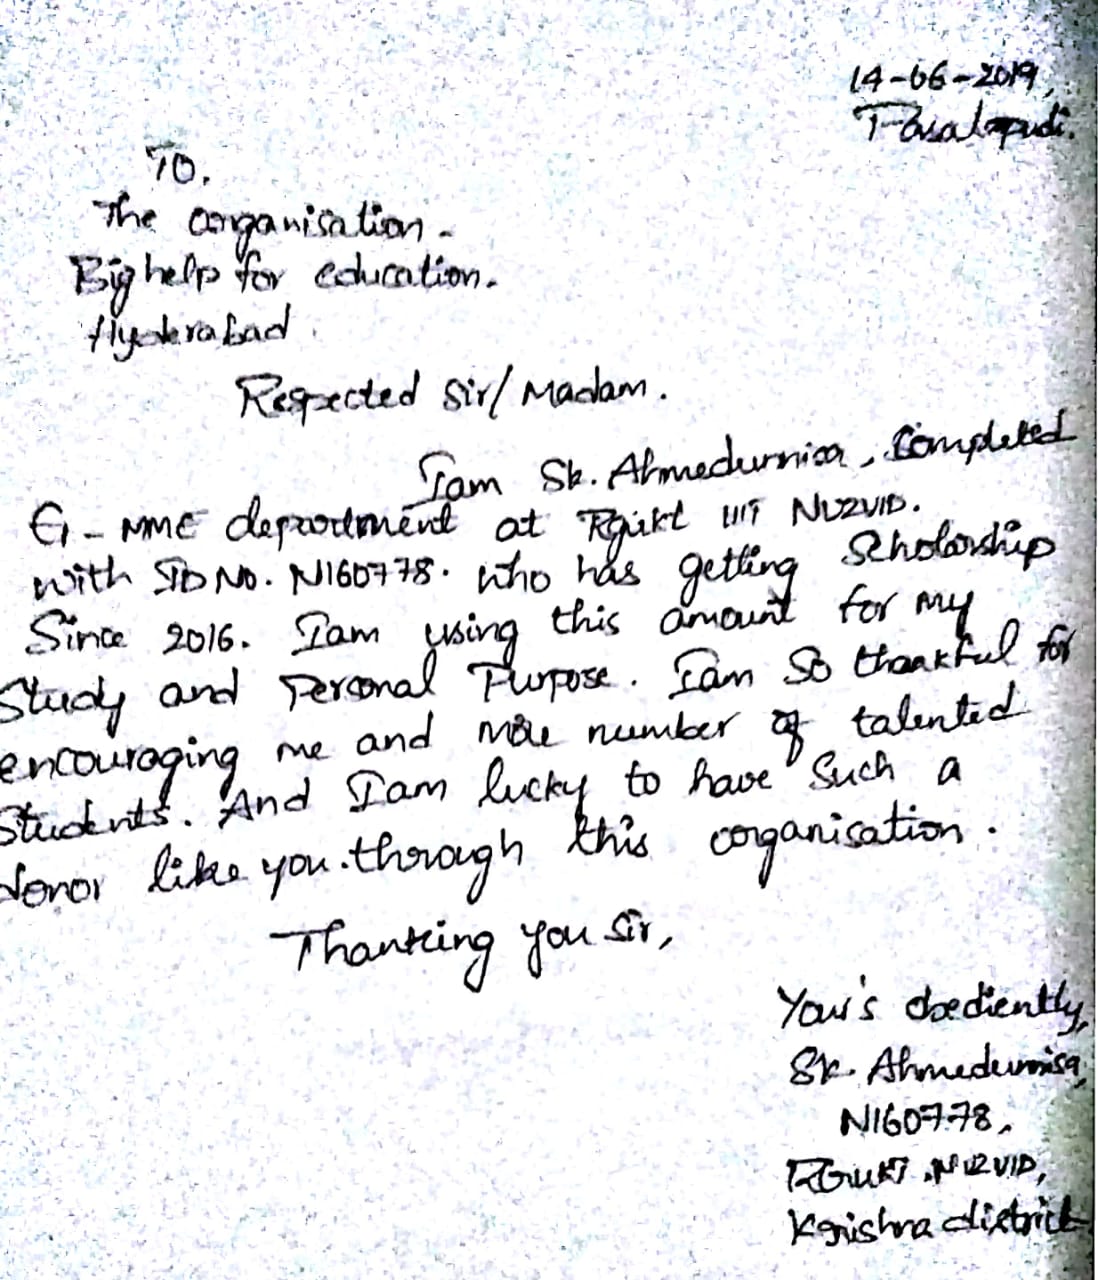 14-06-2019,
Pasalapudi.
To,
The organisation.
Big help for education.
Hyderabad.
Respected Sir/Madam.
Iam Sk. Ahmedunnisa, Completed
E1 - MME department at Rgukt IIIT NUZVID.
with ID NO. N160778. who has getting Scholarship
Since 2016. Iam using this amount for my
Study and Personal Purpose. Iam So thankful for
encouraging me and more number of talented
Students. And Iam lucky to have Such a
donor like you.through this organisation.
Thanking you Sir,
Your's obediently,
Sk. Ahmedunnisa,
N160778,
RGUKT.NUZVID,
Krishna district